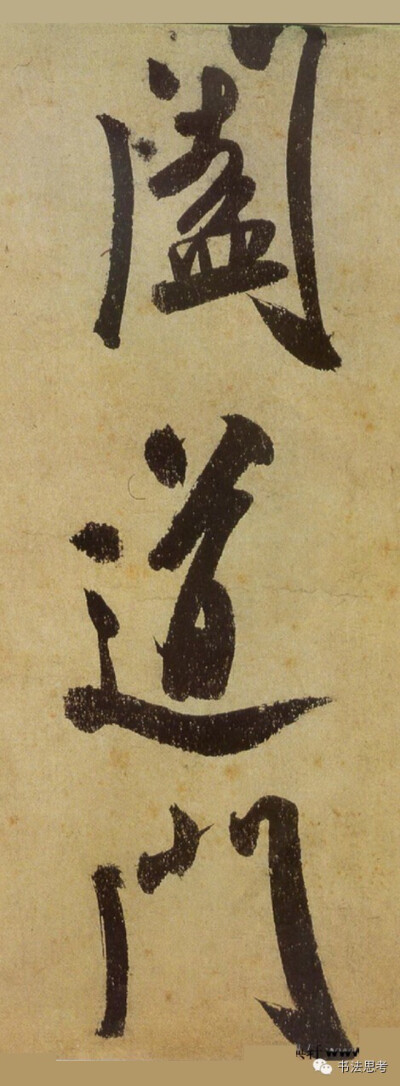 闔道門
www
书法思考